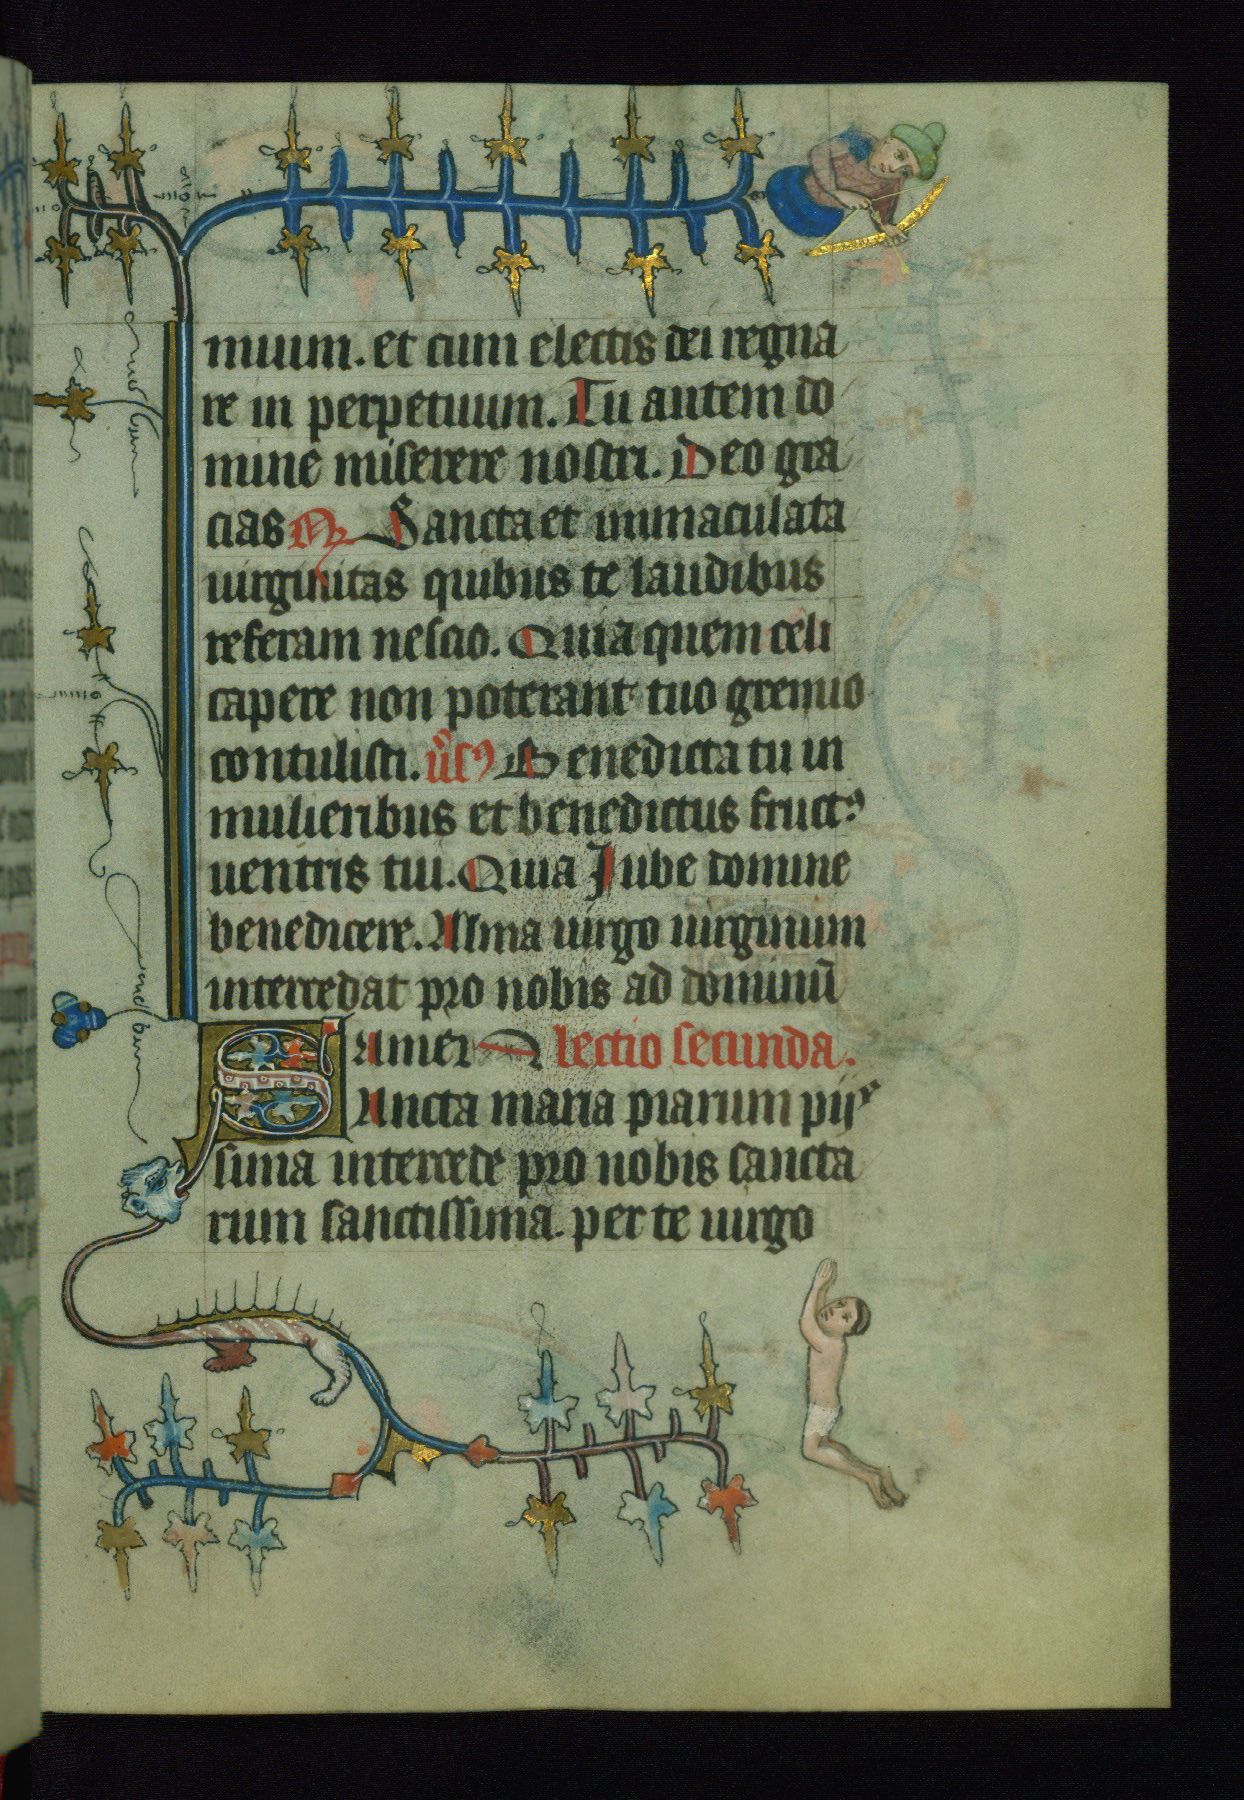 muum. et cum electis dei regna
re in perpetuum. Tu autem do
mine miserere nostri. Deo gra
cias R Sancta et inmaculata
uirginitas quibus te laudibus
referam nescio. Quia quem celi
capere non poterant tuo gremio
contulisti. ũs9 Benedicta tu in
mulieribus et benedictus fruct9
uentris tui. Quia Iube domine
benedicere. Alma uirgo uirginum
intercedat pro nobis ad dominũ
Amen lectio secunda.
SAncta maria piarum pijs
sima intercede pro nobis sancta
rum sanctissima. per te uirgo